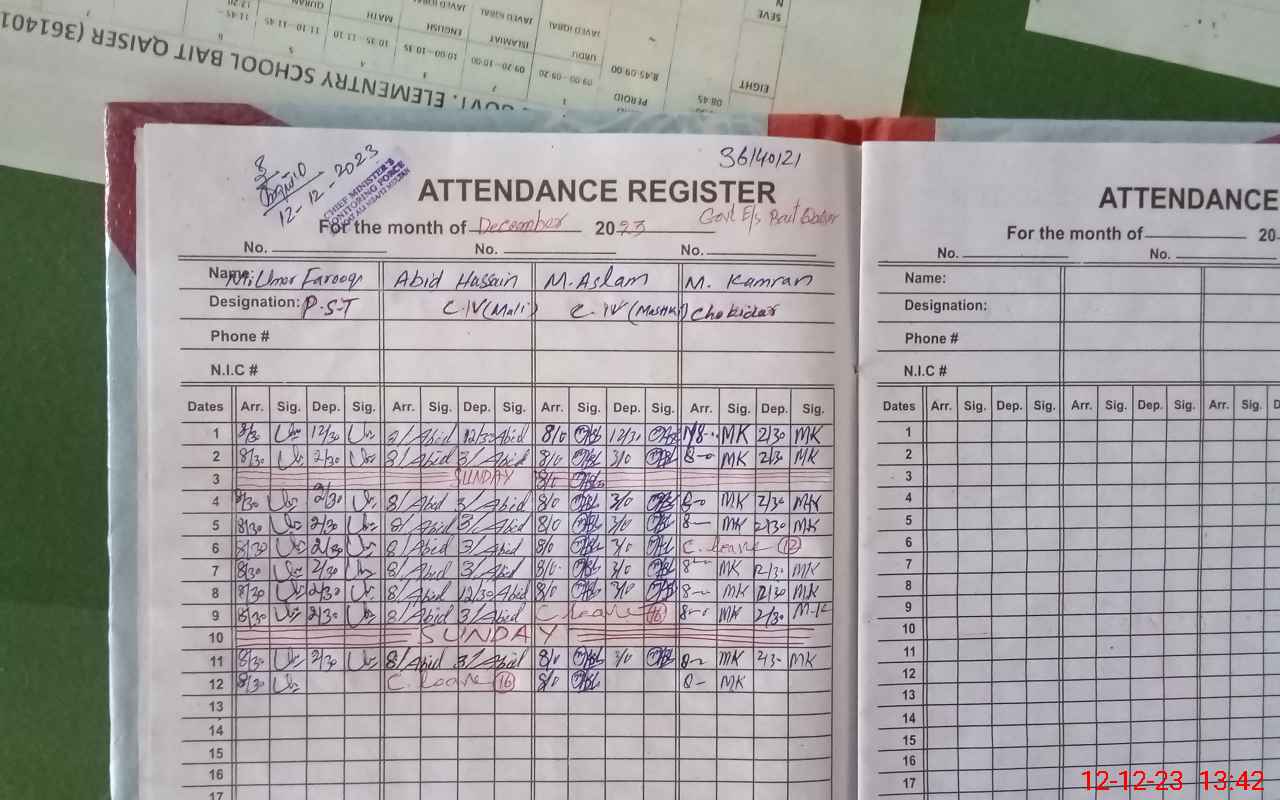 GOVT. ELEMENTRY SCHOOL BAIT QAISER (361401
SEVE N
EIGHT
08:45
PEROID 1 2 3 4 5 6
8:45 09:00 09:00--09:20 09:20--10:00 10:00--10:35 10:35--11:10 11:10--11:45 11:45-- 12:20
URDU ISLAMIAT ENGLISH MATH QURAN
JAVED IQBAL JAVED IQBAL JAVED IQBAL
12-12-2023
CHIEF MINISTER'S
MONITORING FORCE
36140121
ATTENDANCE REGISTER
For the month of December 2023
Govt E/s Bait Qaiser
No. No. No.
Name: M. Umar Farooq Abid Hussain M. Aslam M. Kamran
Designation: P.S.T C.IV (Mali) C.IV (Mashki) Chokidar
Phone #
N.I.C #
Dates Arr. Sig. Dep. Sig. Arr. Sig. Dep. Sig. Arr. Sig. Dep. Sig. Arr. Sig. Dep. Sig.
1 8/30 12/30 8/ Abid 12/30 Abid 8/0 12/30 MK 2/30 MK
2 8/30 2/30 8/ Abid 3/ Abid 8/0 3/0 MK 2/30 MK
3 SUNDAY 8/0
4 8/30 2/30 8/ Abid 3/ Abid 8/0 3/0 MK 2/30 MK
5 8/30 2/30 8/ Abid 3/ Abid 8/0 3/0 MK 2/30 MK
6 8/30 2/30 8/ Abid 3/ Abid 8/0 3/0 C. leave 12
7 8/30 2/30 8/ Abid 3/ Abid 8/0 3/0 MK 12/30 MK
8 8/30 2/30 8/ Abid 12/30 Abid 8/0 3/0 MK 12/30 MK
9 8/30 2/30 8/ Abid 3/ Abid C. leave 16 MK 2/30 MK
10 SUNDAY
11 8/30 2/30 8/ Abid 3/ Abid 8/0 3/0 MK 2/30 MK
12 8/30 C. leave 16 8/0 MK
13
14
15
16
17
ATTENDANCE
For the month of 20
No. No.
Name:
Designation:
Phone #
N.I.C #
Dates Arr. Sig. Dep. Sig. Arr. Sig. Dep. Sig. Arr. Sig. D
1
2
3
4
5
6
7
8
9
10
11
12
13
14
15
16
17
12-12-23 13:42